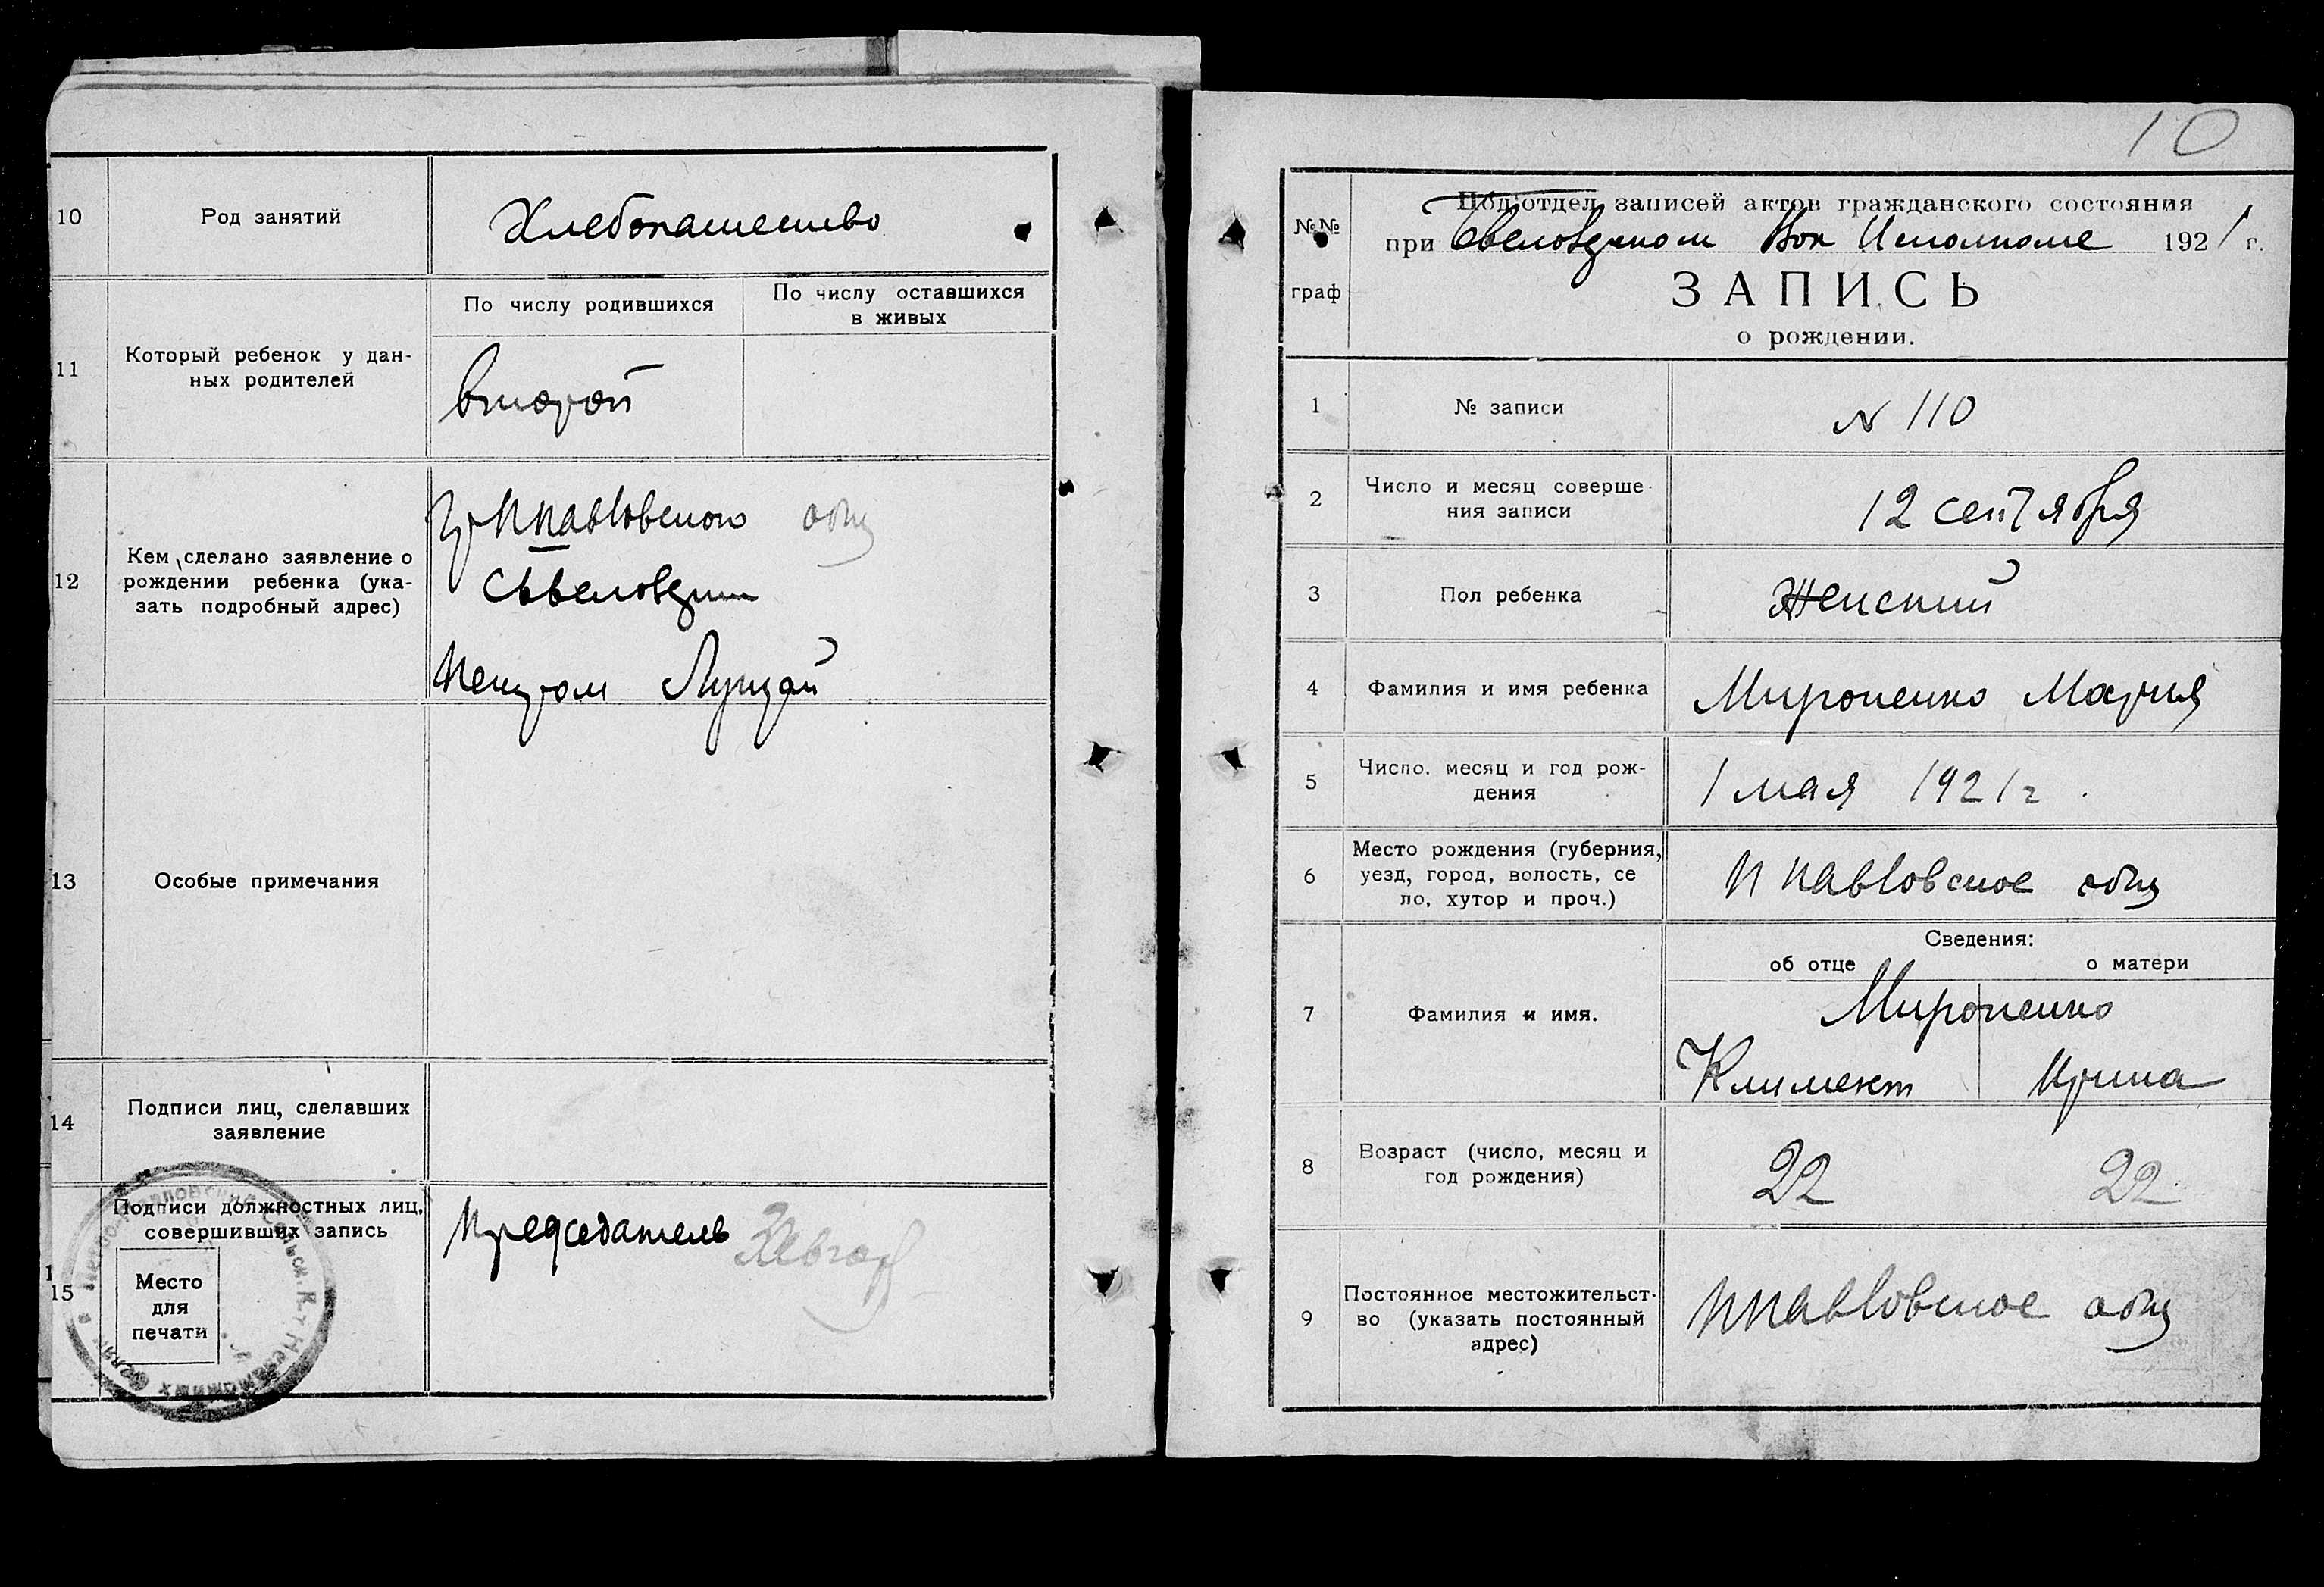 10
Род занятий
Хлебопашество
11
Который ребенок у дан-
ных родителей
По числу родившихся
По числу оставшихся
в живых
второй
12
Кем сделано заявление о
рождении ребенка (ука-
зать подробный адрес)
гр ппавловского общ
Петром
13
Особые примечания
14
Подписи лиц, сделавших
заявление
15
Подписи должностных лиц,
совершивших запись
Место
для
печати
Председатель
10
№№
граф
Под'отдел записей актов гражданского состояния
при Вол Исполкоме 1921 г.
ЗАПИСЬ
о рождении.
1
№ записи
N 110
2
Число и месяц соверше-
ния записи
12 сентября
3
Пол ребенка
Женский
4
Фамилия и имя ребенка
Мироненко Мария
5
Число, месяц и год рож-
дения
1 мая 1921 г.
6
Место рождения (губерния,
уезд, город, волость, се
ло, хутор и проч.)
П павловское общ
7
Фамилия и имя.
Сведения:
об отце
о матери
Мироненко
Климент
Ирина
8
Возраст (число, месяц и
год рождения)
22
22
9
Постоянное местожительст-
во (указать постоянный
адрес)
Ппавловское общ